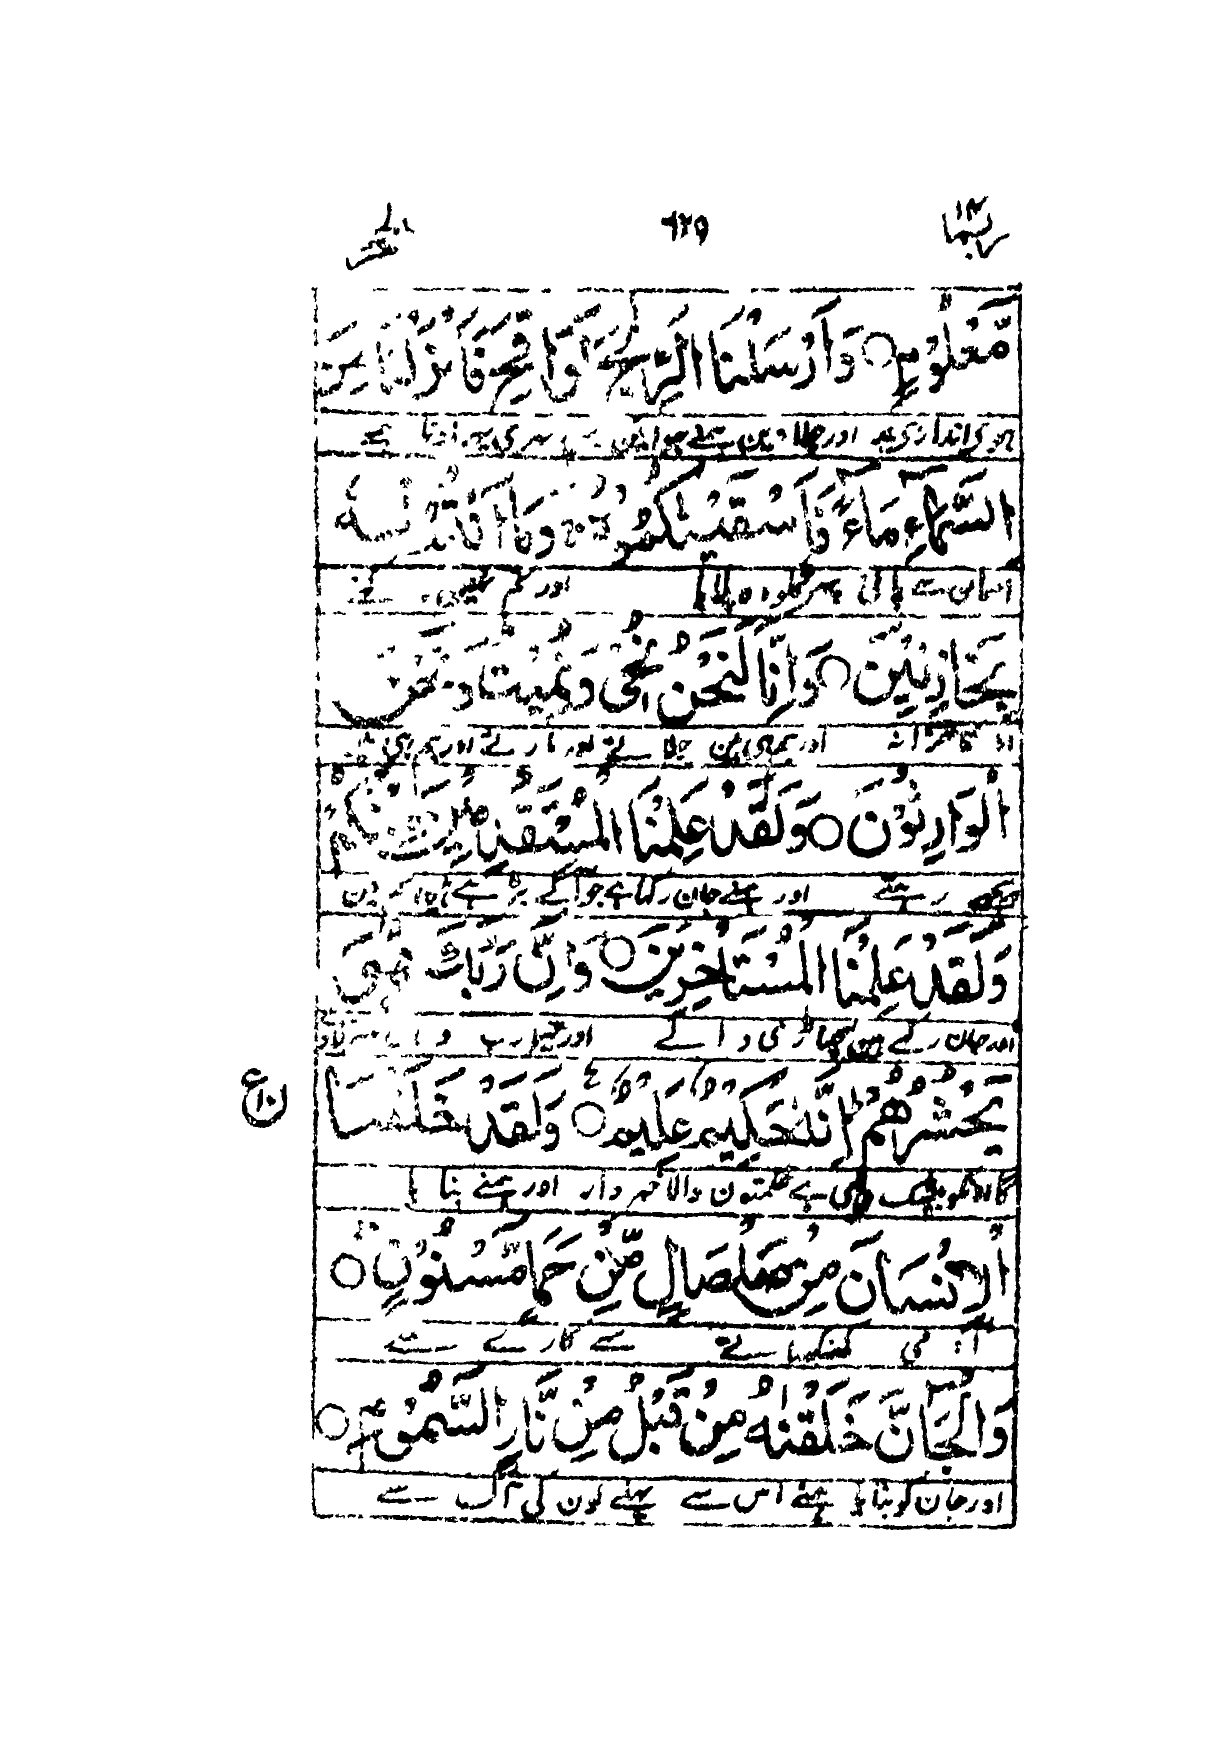 ربما ١٤ ٦٢٥ الحجر
مَّعْلُوْمٍ ○ وَاَرْسَلْنَا الرِّيٰحَ لَوَاقِحَ فَاَنْزَلْنَا مِنَ
اور چلا دین ہمنے ہوائین
السَّمَآءِ مَآءً فَاَسْقَيْنٰكُمُوْهُ وَمَآ اَنْتُمْ لَهٗ
آسمان سے پانی پھر تمکو وہ پلایا اور تم نہیں
بِخَازِنِيْنَ ○ وَاِنَّا لَنَحْنُ نُحْيٖ وَنُمِيْتُ وَنَحْنُ
اور ہم ہی ہین جلاتے اور مارتے اور ہم ہی ہین
الْوَارِثُوْنَ ○ وَلَقَدْ عَلِمْنَا الْمُسْتَقْدِمِيْنَ مِنْكُمْ
پیچھے رہتے اور ہمنے جان رکھا ہے جو آگے بڑھے ہین
وَلَقَدْ عَلِمْنَا الْمُسْتَاْخِرِيْنَ ○ وَاِنَّ رَبَّكَ هُوَ
اور جان رکھے ہین پچھاڑی اور تیرا رب
يَحْشُرُهُمْ ط اِنَّهٗ حَكِيْمٌ عَلِيْمٌ ○ ع وَلَقَدْ خَلَقْنَا
بیشک وہی ہے حکمتون والا خبردار اور ہمنے بنایا
الْاِنْسَانَ مِنْ صَلْصَالٍ مِّنْ حَمَاٍ مَّسْنُوْنٍ ○
آدمی کھنکھناتے سے گارے سے
وَالْجَآنَّ خَلَقْنٰهُ مِنْ قَبْلُ مِنْ نَّارِ السَّمُوْمِ ○
اور جان کو بنایا ہمنے اس سے پہلے لون کی آگ سے